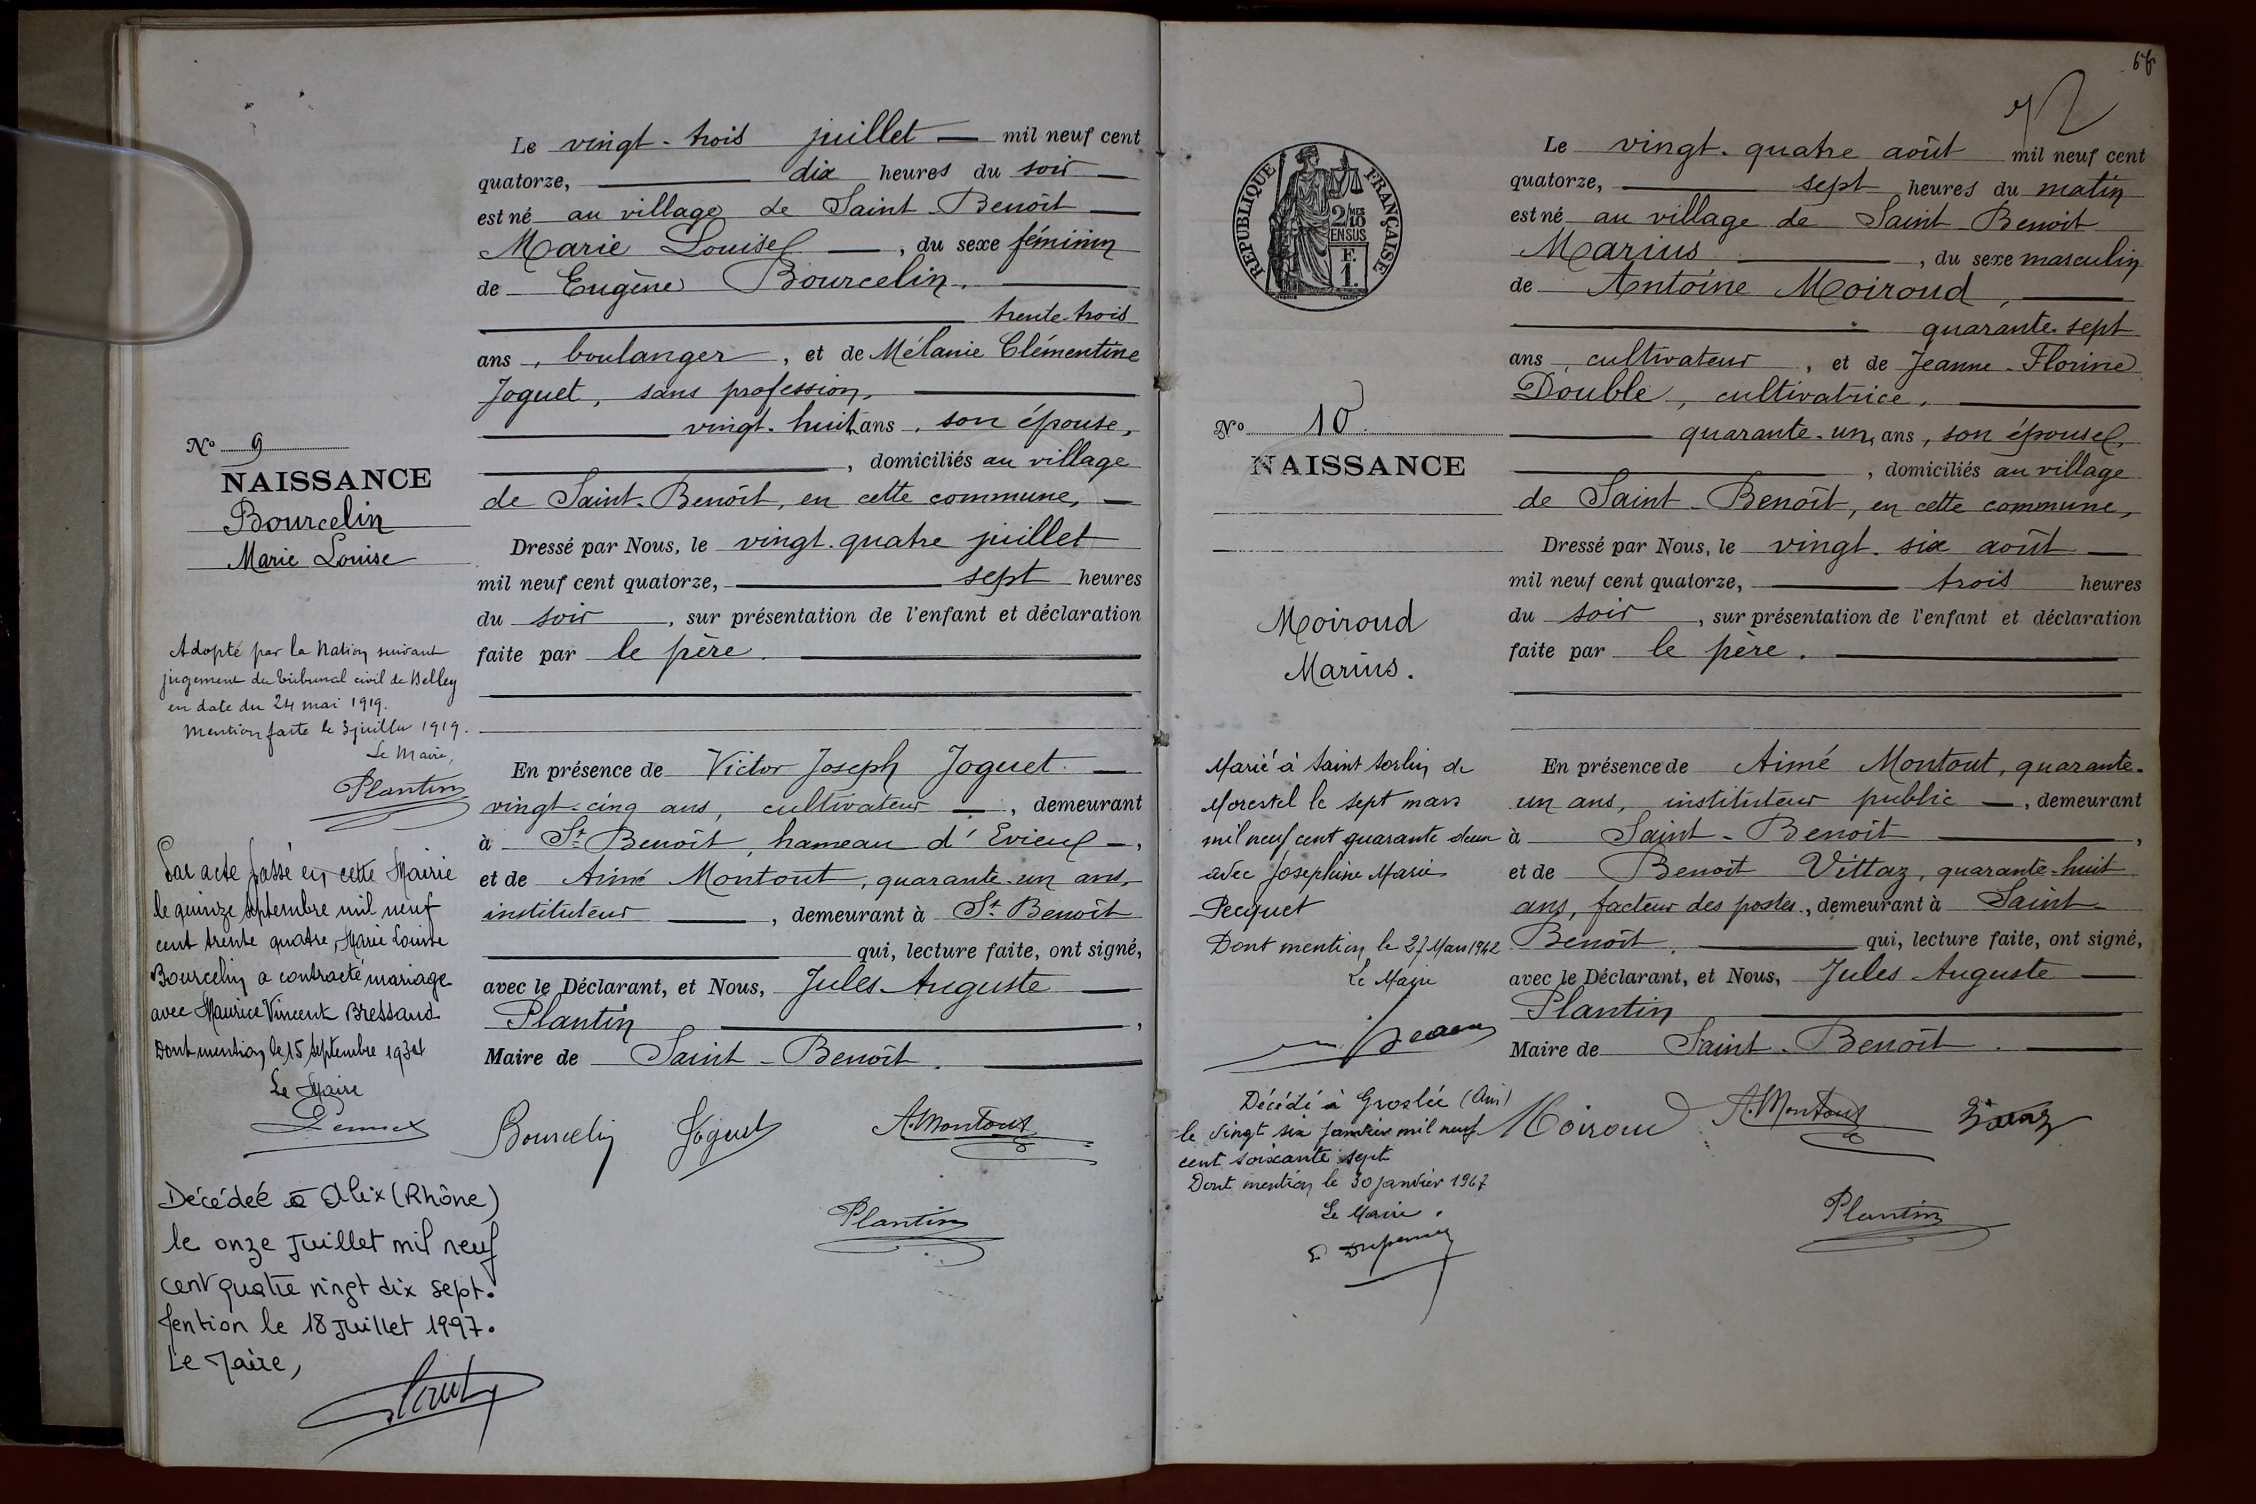 Le vingt-trois juillet — mil neuf cent
quatorze, — dix heures du soir —
est né au village de Saint-Benoît —
Marie Louise —, du sexe féminin
de Eugène Bourcelin, —
— trente-trois
ans, boulanger, et de Mélanie Clémentine
Joguet, sans profession, —
— vingt-huit ans, son épouse,
—, domiciliés au village
de Saint-Benoît, en cette commune, —
Dressé par Nous, le vingt-quatre juillet
mil neuf cent quatorze, — sept heures
du soir, sur présentation de l'enfant et déclaration
faite par le père. —
En présence de Victor Joseph Joguet —
vingt-cinq ans, cultivateur —, demeurant
à St Benoît, hameau d'Evieu —,
et de Aimé Montout, quarante-un ans,
instituteur —, demeurant à St Benoît
— qui, lecture faite, ont signé,
avec le Déclarant, et Nous, Jules-Auguste —
Plantin —,
Maire de Saint-Benoît. —
Bourcelin Joguet A. Montout
Plantin
No 9
NAISSANCE
Bourcelin
Marie Louise
Adopté par la Nation suivant
jugement du tribunal civil de Belley
en date du 24 mai 1919.
Mention faite le 3 juillet 1919.
Le Maire,
Plantin
Par acte passé en cette Mairie
le quinze septembre mil neuf
cent trente quatre, Marie Louise
Bourcelin a contracté mariage
avec Maurice Vincent Bressand
Dont mention le 15 septembre 1934
Le Maire
Décédée à Alix (Rhône)
le onze Juillet mil neuf
cent quatre vingt dix sept.
Mention le 18 Juillet 1997.
Le Maire,
Le vingt-quatre août mil neuf cent
quatorze, — sept heures du matin
est né au village de Saint-Benoît
Marius —, du sexe masculin
de Antoine Moiroud, —
— quarante-sept
ans, cultivateur, et de Jeanne-Florine
Double, cultivatrice, —
— quarante-un, ans, son épouse,
—, domiciliés au village
de Saint-Benoît, en cette commune,
Dressé par Nous, le vingt-six août —
mil neuf cent quatorze, — trois heures
du soir, sur présentation de l'enfant et déclaration
faite par le père. —
En présence de Aimé Montout, quarante-
un ans, instituteur public —, demeurant
à Saint-Benoît —,
et de Benoît Vittaz, quarante-huit
ans, facteur des postes, demeurant à Saint-
Benoît, — qui, lecture faite, ont signé,
avec le Déclarant, et Nous, Jules-Auguste —
Plantin —
Maire de Saint-Benoît. —
Moiroud A. Montout
Plantin
REPUBLIQUE FRANÇAISE
2/10 MES
EN SUS
F.
1.
No 10
NAISSANCE
Moiroud
Marius.
Marié à Saint Sorlin de
Morestel le sept mars
mil neuf cent quarante deux
avec Joséphine Marie
Pecquet
Dont mention le 27 Mars 1942
Le Maire
Décédé à Groslée (Ain)
le vingt six janvier mil neuf
cent soixante sept
Dont mention le 30 janvier 1967
Le Maire.